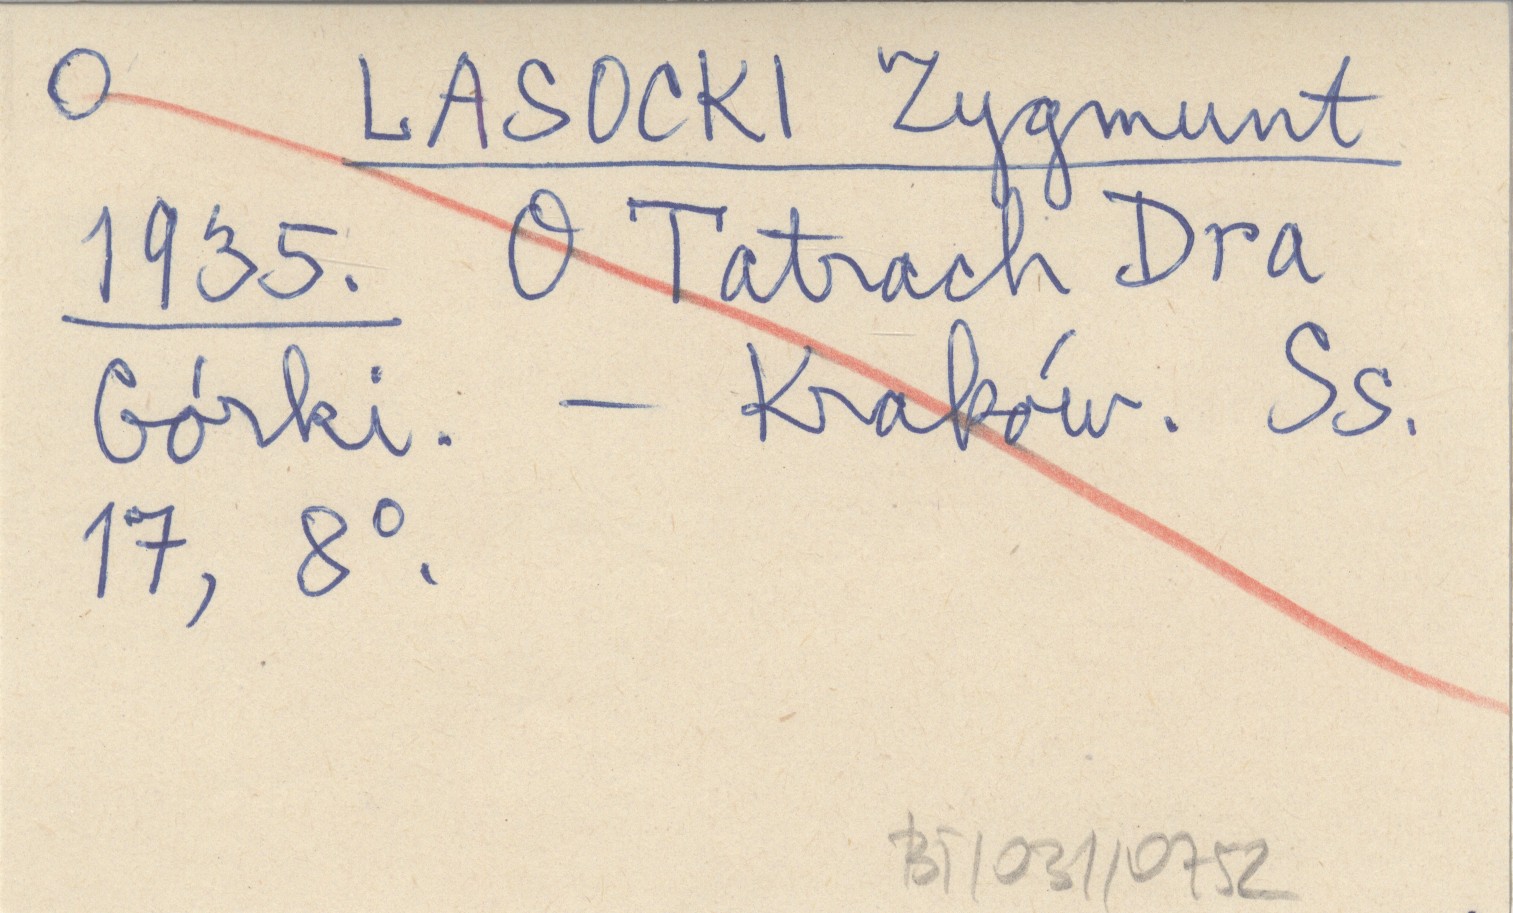 O LASOCKI Zygmunt
1935. O Tatrach Dra
Górki. — Kraków. Ss.
17, 8°.
BT/031/0752